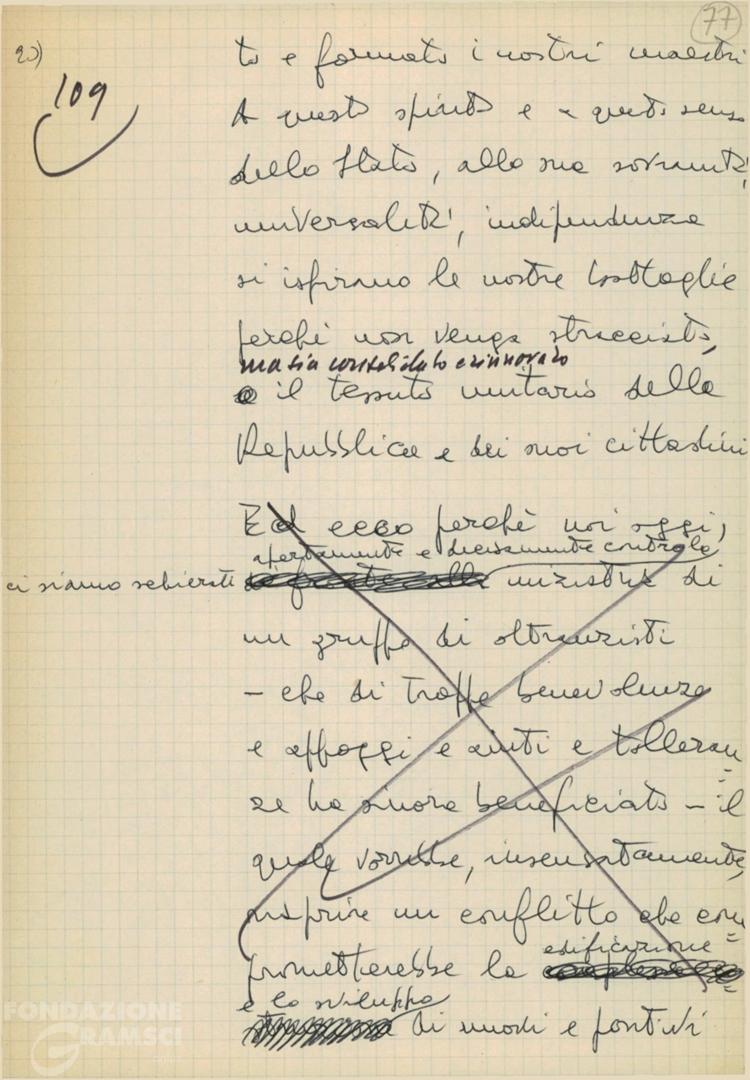 77
20)
109
to e formato i nostri maestri
A questo spirito e a questo senso
dello Stato, alla sua sovranità,
universalità, indipendenza
si ispirano le nostre battaglie
perchè non venga stracciato,
ma sia consolidato e rinnovato
il tessuto unitario della
Repubblica e dei suoi cittadini
Ed ecco perchè noi oggi,
apertamente e decisamente contro le
ci siamo schierati
di
un gruppo di oltranzisti
– che di troppe benevolenze
e appoggi e aiuti e tolleran=
ze ha sinora beneficiato – il
quale vorrebbe, insensatamente,
inasprire un conflitto che com=
prometterebbe la
edificazione
e lo sviluppo
di nuovi e positivi
FONDAZIONE
GRAMSCI